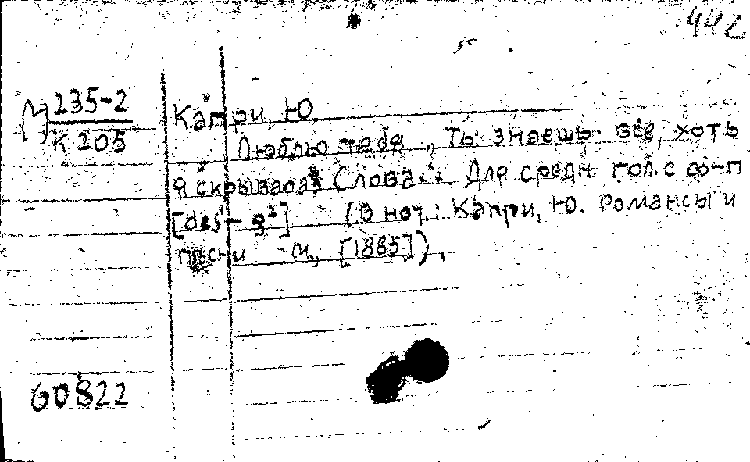 442
М 235-2
К 205
Капри, Ю.
Люблю тебя.. Ты знаешь всё, хоть
я скрывала: Слова... Для средн. гол. с ф-п
[des¹-g²] (В нот.: Капри, Ю. Романсы и
песни - М, [1885]).
60822